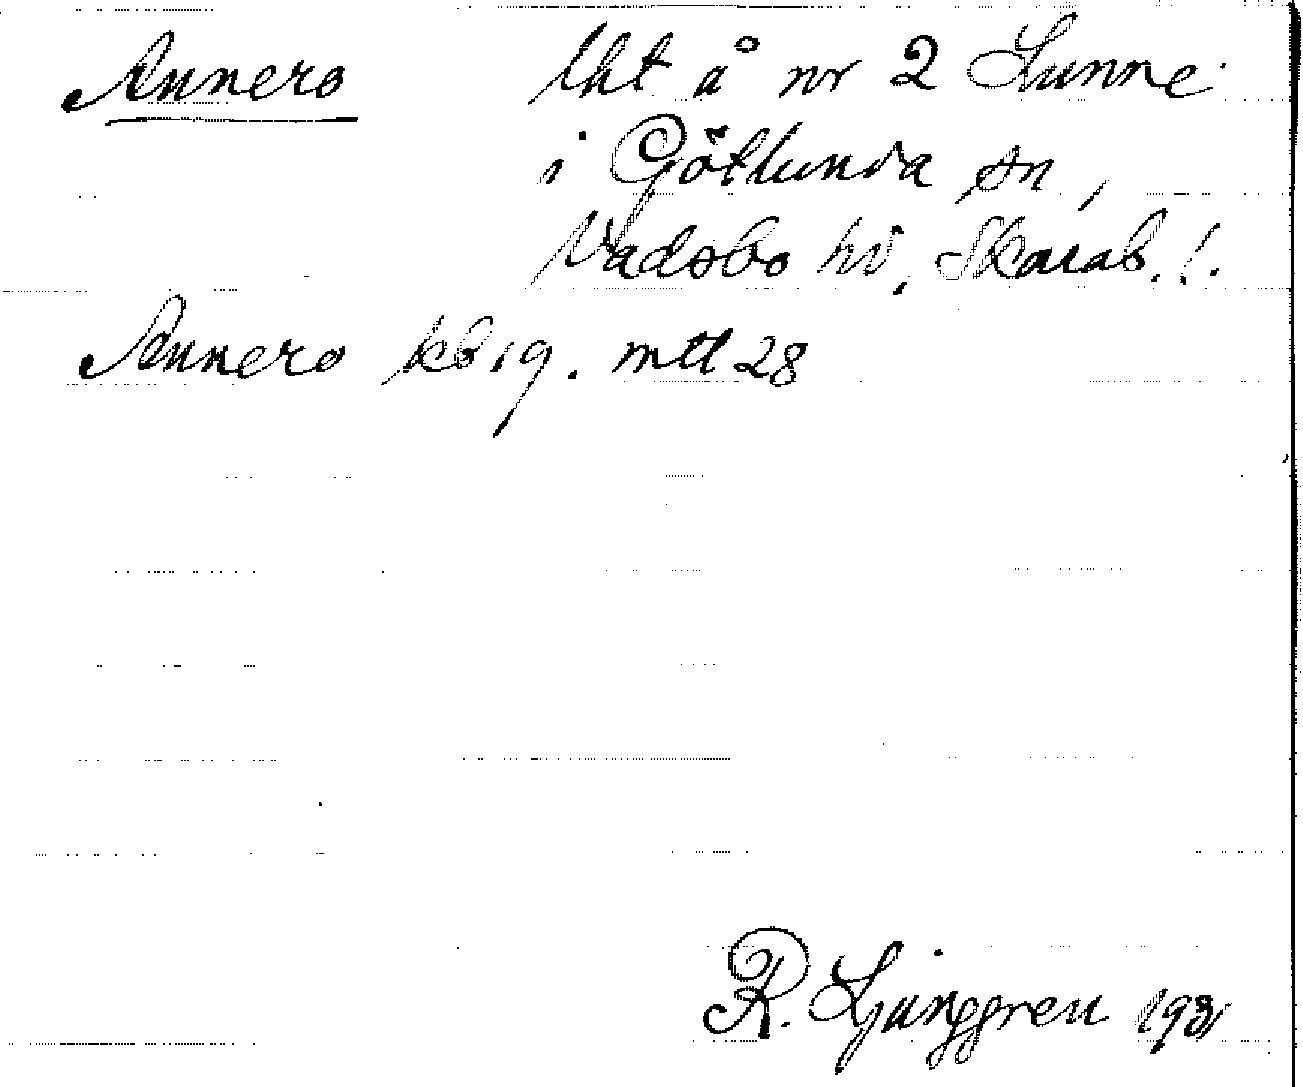 Annero lht å nr 2 Sunne
i Götlunda sn,
Vadsbo hd, Skarab. l.
Annero kb 19. mtl 28
R. Ljunggren